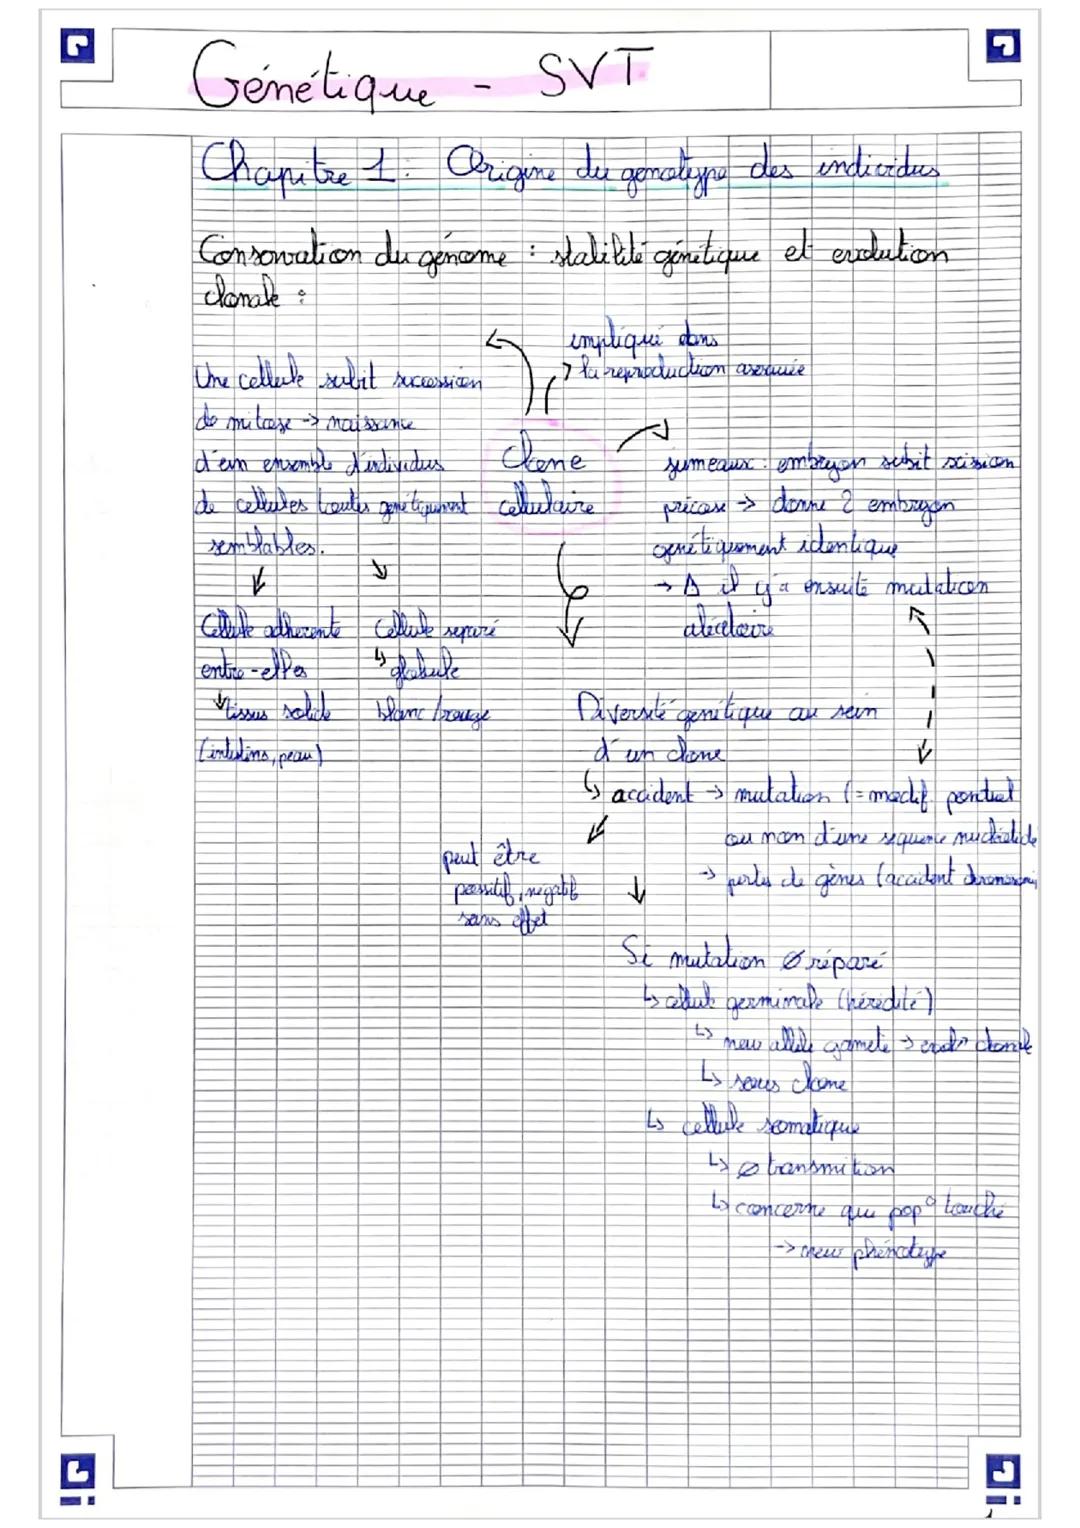 Génétique - SVT
Chapitre 1: Origine du genotype des individus
Conservation du génome : stabilité génétique et evolution
clonale :
impliqué dans
la reproduction asexuée
Une cellule subit succession
de mitose -> naissance
d'un ensemble d'individus
de cellules toutes genétiquement
semblables.
Clone
cellulaire
jumeaux : embryon subit scission
précose -> donne 2 embryon
genétiquement identique
-> Δ il y'a ensuite mutation
aléatoire
Cellule adherente
entre-elles
tissus solide
(intestins, peau)
Cellule separé
↳ globule
blanc / rouge
Diversité genétique au sein
d'un clone
↳ accident -> mutation (= modif. ponctuel
ou non d'une sequence nucléotide
-> perte de gènes (accident
peut être
possitif, negatif
sans effet
Si mutation Ø réparé
↳ cellule germinale (hérédité)
↳ new allèle gamete -> evol° clonale
↳ sous clone
↳ cellule somatique
↳ Ø transmition
↳ concerne que pop° touché
-> new phénotype